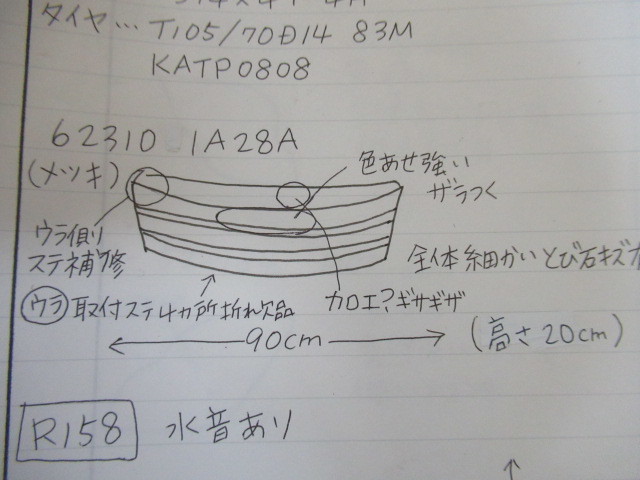 タイヤ… T105/70D14 83M
KATP0808
62310 1A28A
(メッキ)
色あせ強い
ザラつく
ウラ側
ステ補修
全体細かいとび石キズ
ウラ 取付ステ4ヵ所折れ欠品
加工?ギザギザ
90cm
(高さ20cm)
R158 水音あり